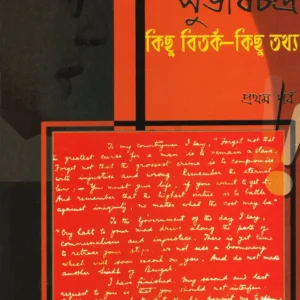 সুভাষচন্দ্র
কিছু বিতর্ক—কিছু তথ্য
প্রথম পর্ব
To my countrymen I say, "Forget not that
the greatest curse for a man is to remain a slave.
Forget not that the grossest crime is to compromise
with injustice and wrong. Remember the eternal
law. — You must give life, if you want to get it.
And remember that the highest virtue is to battle
against iniquity, no matter what the cost may be."
To the Government of the day I say,
"Cry halt to your mad drive along the path of
communalism and injustice. There is yet time
to retrace your steps. Do not use a boomerang
which will soon recoil on you. And do not make
another Sindh of Bengal".
I have finished. My second and last
request to you is that you should not